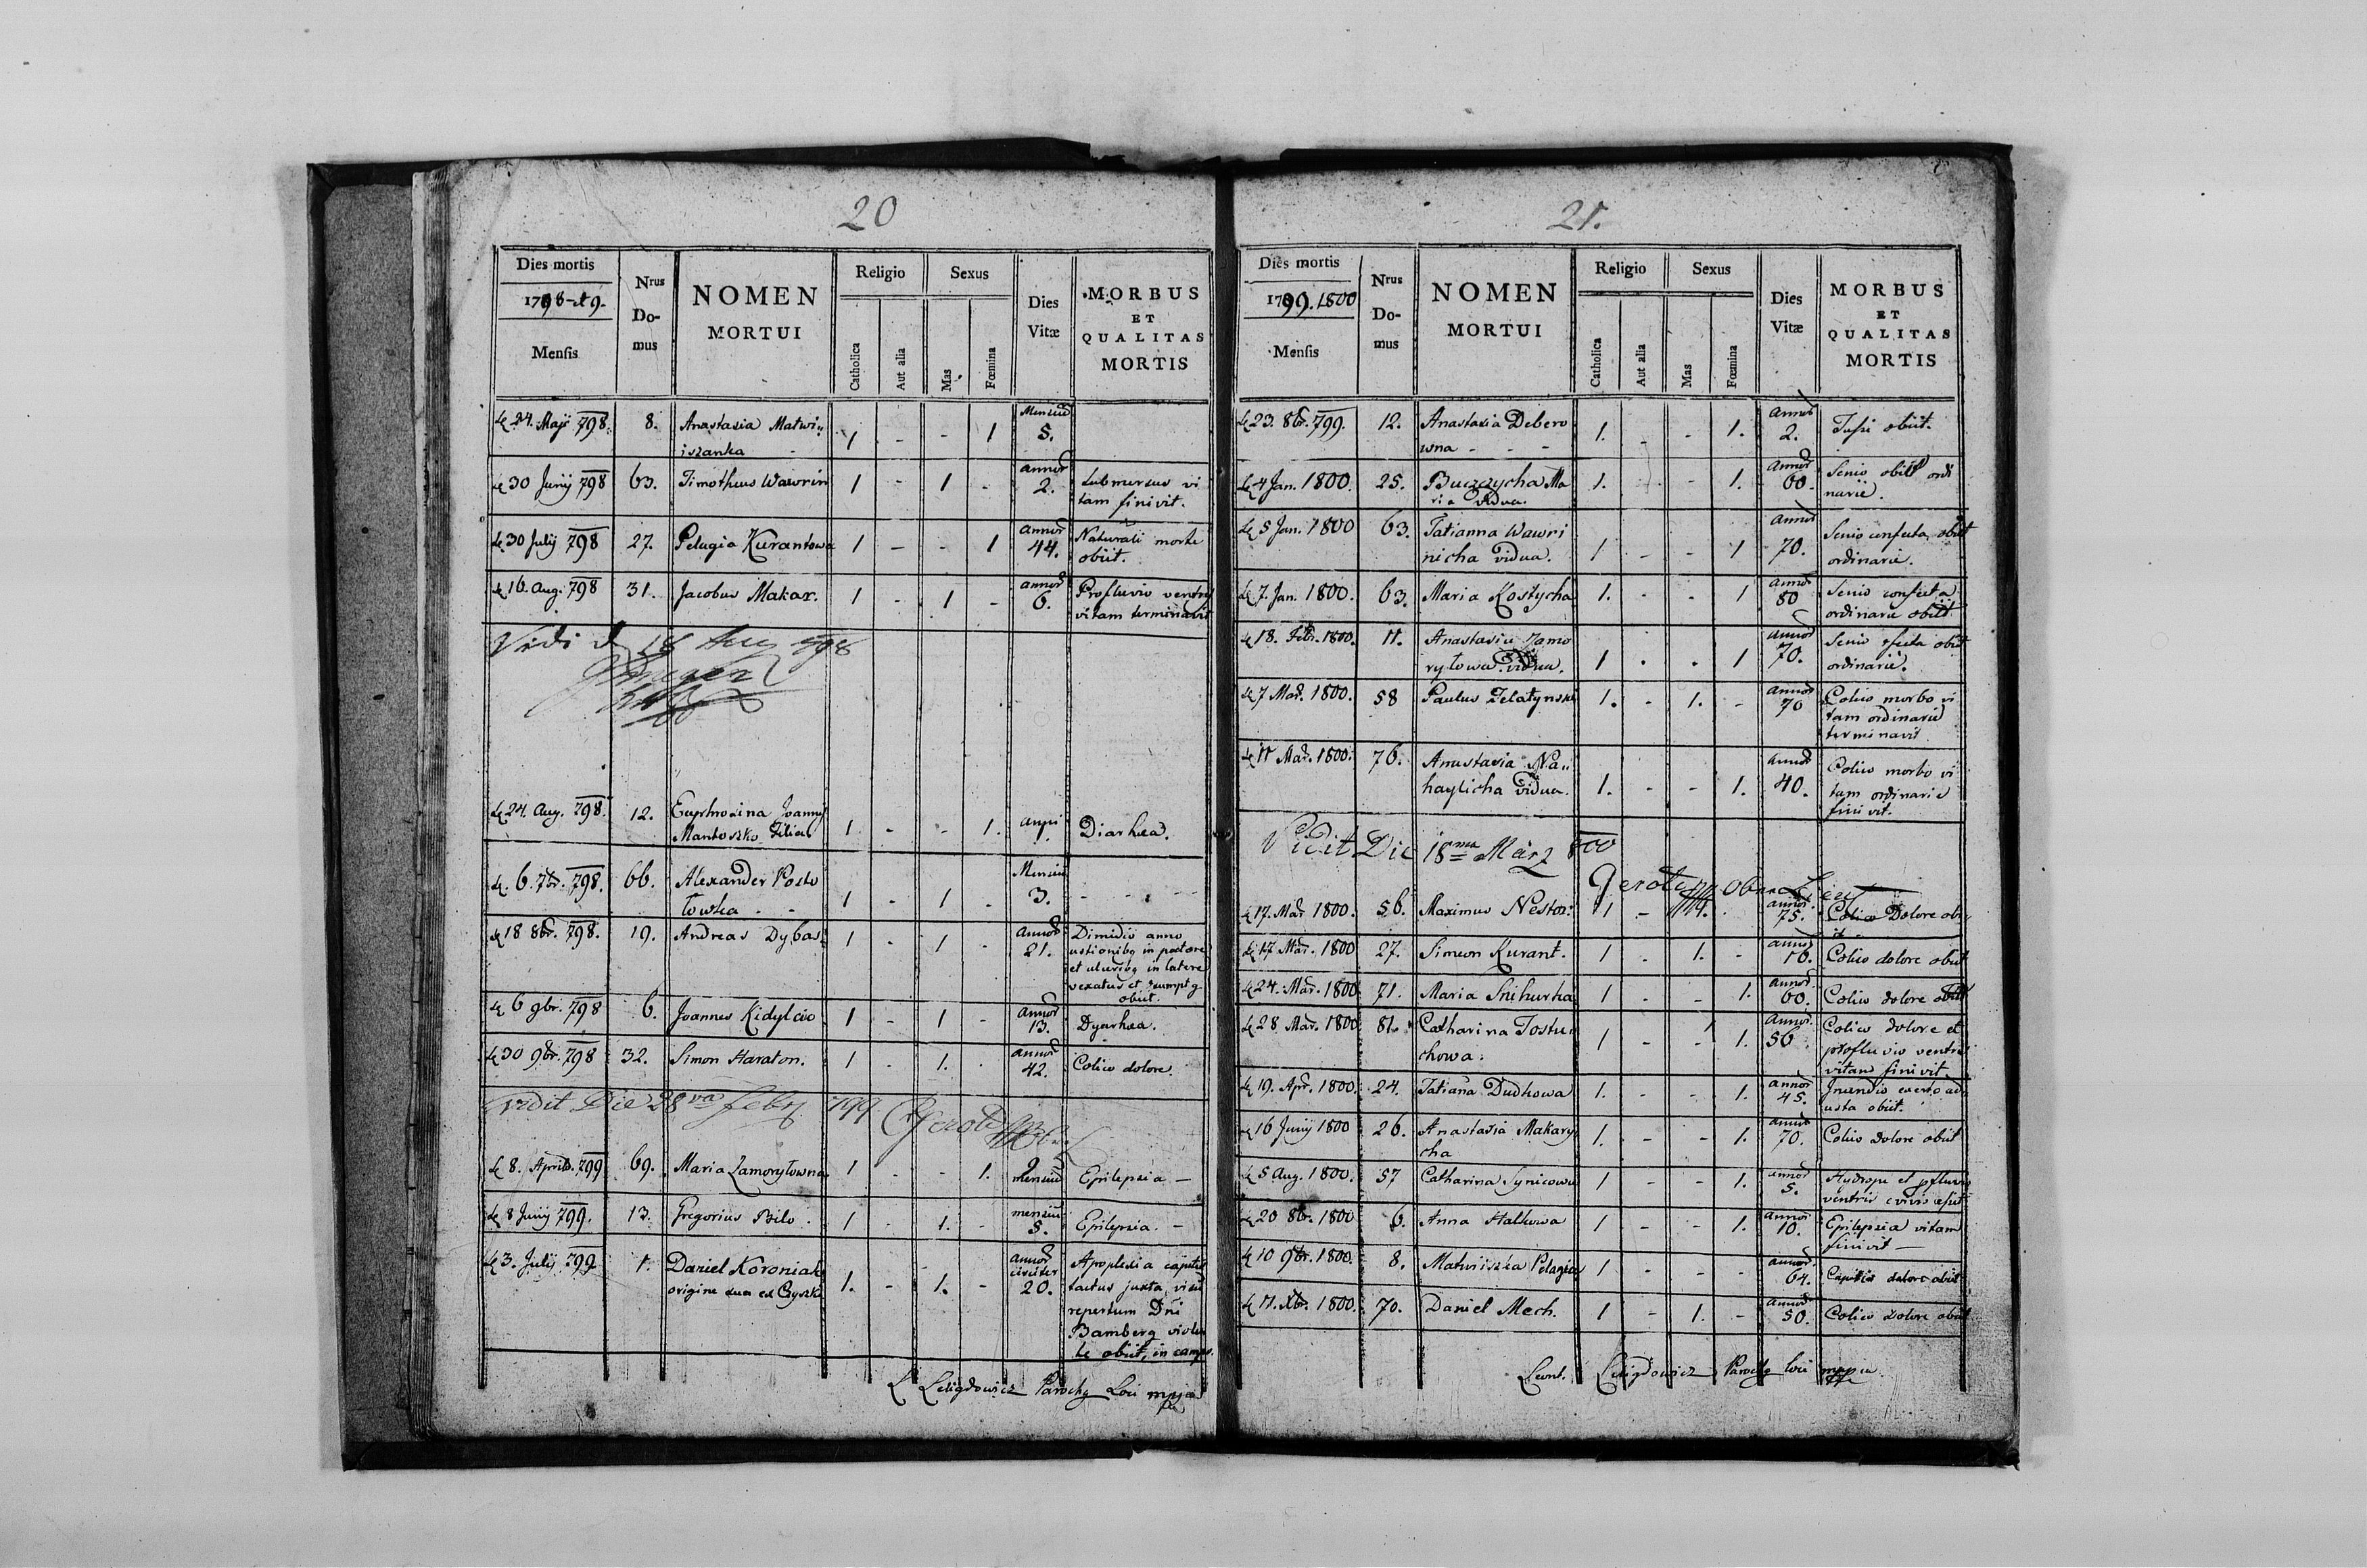 20
Dies mortis
1798-et 9.
Mensis
Nrus
Do-
mus
NOMEN
MORTUI
Religio
Catholica
Aut alia
Sexus
Mas
Fœmina
Dies
Vitæ
MORBUS
ET
QUALITAS
MORTIS
24. Maji 798. 8. Anastasia Matwi„ 1 - - 1 Mensiu 5.
iszanka -
30 Junij 798 63. Timotheus Wawrin 1 - 1 - annor 2. submersus vi
tam finivit.
30 Julij 798 27. Pelagia Kurantowa 1 - - 1 annor 44. Naturali morte
obiit.
16. Aug. 798 31. Jacobus Makar. 1 - 1 - annor 6. Profluvio ventris
vitam terminavit
Vidi d 18 Aug 798
24. Aug. 798. 12. Euphrosina Joannis 1 - - 1. anni 1. Diarhea.
Mantoszko Filia
6. 7br. 798. 66. Alexander Posto 1 - 1 - Mensiu 3. - - -
towka - -
18 8br. 798. 19. Andreas Dybas. 1 - 1 - Annor 21. Dimidio anno
ustionibq in pectore
et ulceribq in latere
vexatus et
obiit.
6 9br. 798 6. Joannes Kidylcio 1 - 1 - annor 13. Dyarhea.
30 9br. 798 32. Simon Haraton. 1 - 1. - annor 42. Colico dolore.
vidit Die 28va Febr 799
8. Aprilis. 799 69. Maria Zamorytowna 1 - - 1. 2 mensiu Epilepsia —
8 Junij 799. 13. Gregorius Bilo. 1 - 1. - mensiu 5. Epilepsia. -
3. Julij 799 1. Daniel Koroniak 1. - 1. - annor circiter 20. Apoplexia capitis
origine sua ex
tactus juxta visu
repertum Dni
Bamberg
obiit, in campo.
L. Parochq Loci mppa
21.
Dies mortis
1799.1800
Mensis
Nrus
Do-
mus
NOMEN
MORTUI
Religio
Catholica
Aut alia
Sexus
Mas
Fœmina
Dies
Vitæ
MORBUS
ET
QUALITAS
MORTIS
23. 8br. 799. 12. Anastasia Debero 1. - - 1. annor 2. Tussi obiit.
wna - - -
4 Jan. 1800. 25. Buczycha Ma 1. - 1. Annor 60. Senio obiit ordi
ria vidua. narie.
5 Jan. 1800 63. Tatianna Wawri 1 - - 1 annor 70. Senio confecta obiit
nicha vidua. ordinarie.
7. Jan. 1800. 63. Maria Kostycha 1. - - 1 annor 80 Senio confecta
ordinarie obiit
18. Febr. 1800. 11. Anastasia Zamo 1 . . 1 annor 70. Senio cfecta obiit
rytowa vidua. ordinarie.
7 Mar. 1800. 58 Paulus Zelatynski 1. - 1. - annor 70 Colico morbo vi
tam ordinarie
terminavit
11 Mar. 1800. 76. Anastasia Na„ 1. - - 1. annor 40. Colico morbo vi
haylicha vidua. tam ordinarie
finivit.
Vidit Die 18ma März 800
17. Mar 1800. 56. Maximus Nestor. 1 - annor 75. Colico Dolore obi„
it -
17 Mar. 1800 27. Simeon Kurant. 1 . 1. - annor 16. Colico dolore obiit
24. Mar. 1800 71. Maria Snihurka 1 - - 1. annor 60. Colico dolore obiit
28 Mar. 1800 81. Catharina Tostu 1 - - 1. Annor 56 Colico dolore et
chowa. profluvio ventris
vitam finivit
19. Apr. 1800. 24. Tatiana Dudkowa 1. - - 1. annor 45. Incendio ad
usta obiit.
16 Junij 1800 26. Anastasia Makary 1. - - 1. annor 70. Colico dolore obiit
cha
5 Aug. 1800. 57 Catharina Synicowa 1 - - 1. annor 5. Hydrope et pfluvio
ventris
20 8br. 1800 6. Anna Halkowa 1 - - 1. Annor 10. Epilepsia vitam
finivit —
10 9br. 1800. 8. Matwiiszka Pelagia 1 - - - annor 64. Capitis dolore obiit
11. Xbr. 1800. 70. Daniel Mech. 1 - 1. - annor 50. Colico dolore obiit
Leont. Parochq loci mppa